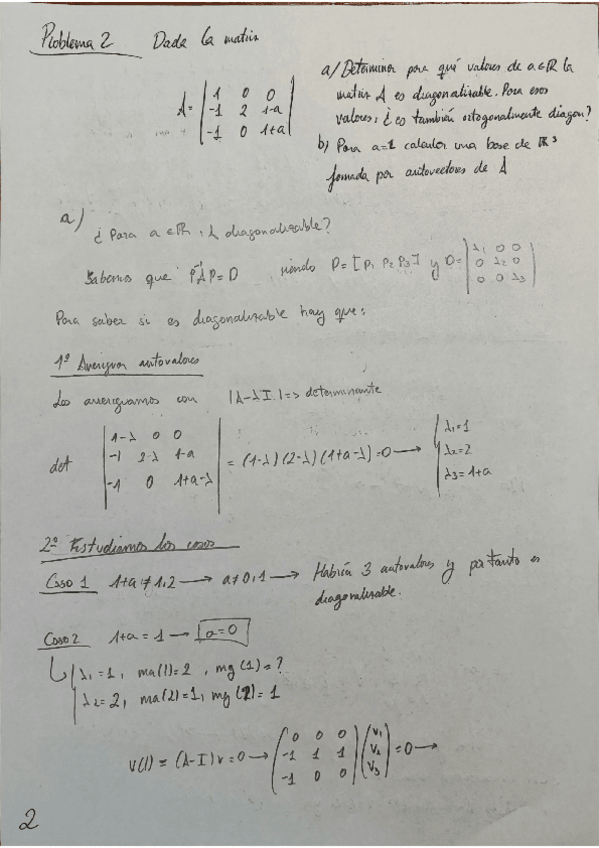 Problema 2 Dada la matriz
A = | 1 0 0 |
| -1 2 1-a |
| -1 0 1+a |
a/ Determinar para qué valores de a∈ℝ la
matriz A es diagonalizable. Para esos
valores, ¿es también ortogonalmente diagon?
b) Para a=1 calcular una base de ℝ³
formada por autovectores de A
a)
¿Para a∈ℝ, A diagonalizable?
Sabemos que P⁻¹AP=D siendo P=[P₁ P₂ P₃] y D= | λ₁ 0 0 |
| 0 λ₂ 0 |
| 0 0 λ₃ |
Para saber si es diagonalizable hay que:
1º Averiguar autovalores
Los averiguamos con |A-λI| => determinante
det | 1-λ 0 0 |
| -1 2-λ 1-a |
| -1 0 1+a-λ |
= (1-λ)(2-λ)(1+a-λ)=0 →
λ₁=1
λ₂=2
λ₃=1+a
2º Estudiamos los casos
Caso 1 1+a≠1,2 → a≠0,1 → Habrían 3 autovalores y por tanto es
diagonalizable.
Caso 2 1+a=1 → a=0
λ₁=1, ma(1)=2, mg(1)=?
λ₂=2, ma(2)=1, mg(2)=1
V(1) ≡ (A-I)v=0 → ( 0 0 0 ) ( v₁ )
( -1 1 1 ) ( v₂ ) =0 →
( -1 0 0 ) ( v₃ )
2